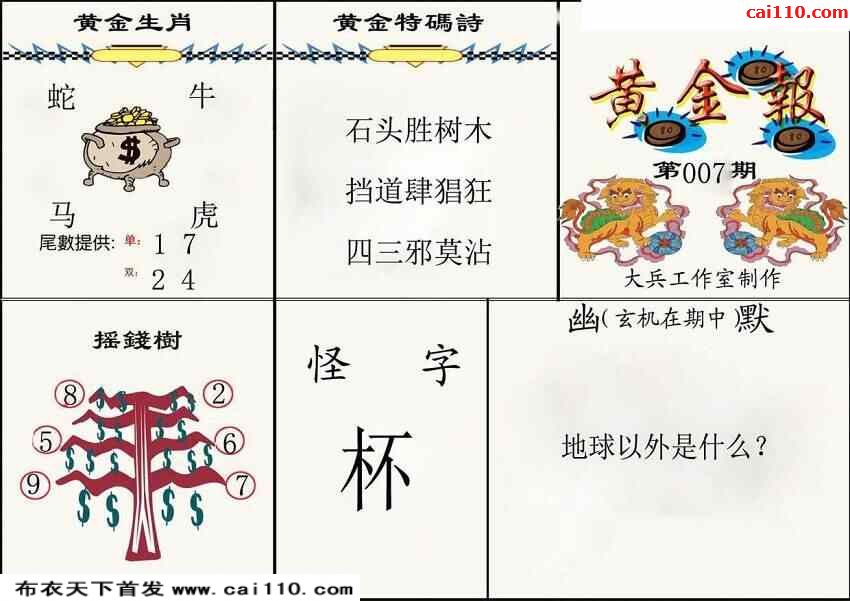 cai110.com
黄金生肖
蛇 牛
$
马 虎
尾數提供: 单: 1 7
双: 2 4
黄金特碼詩
石头胜树木
挡道肆猖狂
四三邪莫沾
黄金報
80
80
80
第007期
大兵工作室制作
摇錢樹
8 2
5 6
9 7
$ $ $ $
$ $ $ $ $ $
$ $ $ $
怪 字
杯
幽(玄机在期中)默
地球以外是什么?
布衣天下首发 www.cai110.com